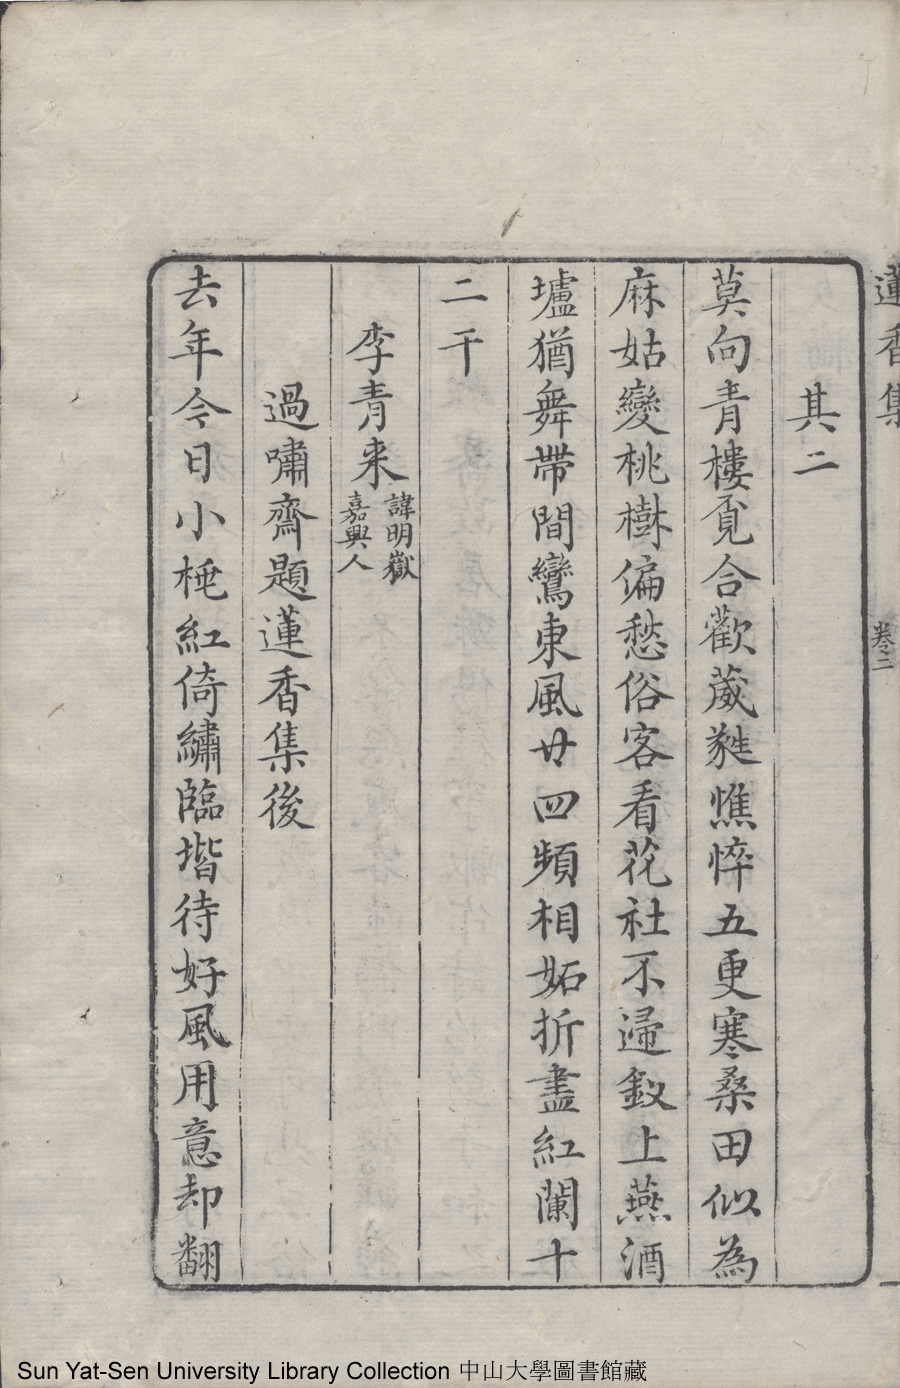 蓮香集
卷二
其二
莫向青樓覓合歡葳蕤憔悴五更寒桑田似為
麻姑變桃樹偏愁俗客看花社不歸釵上燕酒
壚猶舞帶間鸞東風廿四頻相妬折盡紅闌十
二干
李青来
諱明嶽
嘉興人
過嘯齋題蓮香集後
去年今日小桃紅倚繡臨堦待好風用意却翻
Sun Yat-Sen University Library Collection 中山大學圖書館藏